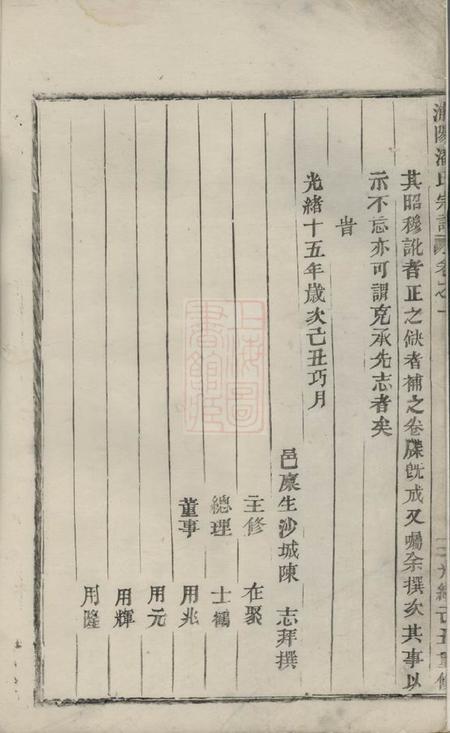 潘氏宗譜 卷之一
光緒己丑重修
其昭穆訛者正之缺者補之卷牒旣成又囑余撰次其事以
示不忘亦可謂克承先志者矣
旹
光緒十五年歲次己丑巧月
邑廩生沙城陳 志拜撰
主修 在聚
總理 士鵷
董事 用兆
用元
用輝
用隆
上海圖書館藏